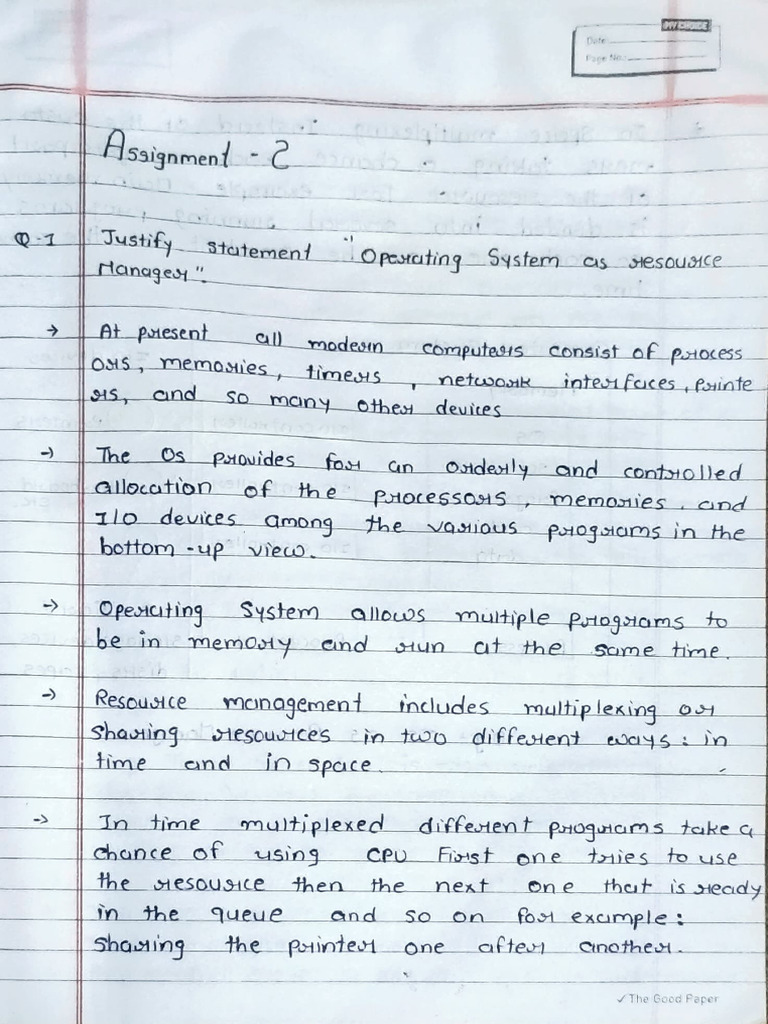 MY CHOICE
Date:
Page No.:
Assignment - 2
Q-1 Justify statement "Operating System as resource
Manager".
→ At present all modern computers consist of process
ors, memories, timers, network interfaces, printe
rs, and so many other devices
→ The Os provides for an orderly and controlled
allocation of the processors, memories, and
I/O devices among the various programs in the
bottom-up view.
→ Operating System allows multiple programs to
be in memory and run at the same time.
→ Resource management includes multiplexing or
sharing resources in two different ways: in
time and in space.
→ In time multiplexed different programs take a
chance of using CPU First one tries to use
the resource then the next one that is ready
in the queue and so on for example:
sharing the printer one after another.
✓ The Good Paper